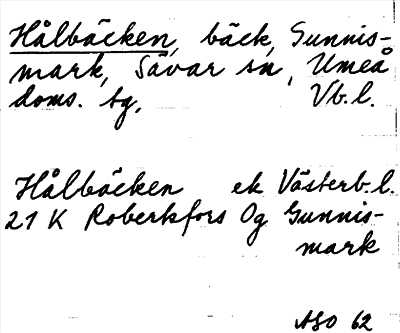 Hålbäcken, bäck, Gunnis-
mark, Sävar sn, Umeå
doms. tg, Vb. l.
Hålbäcken ek Västerb. l.
21 K Robertsfors Og Gunnis-
mark
ASO 62